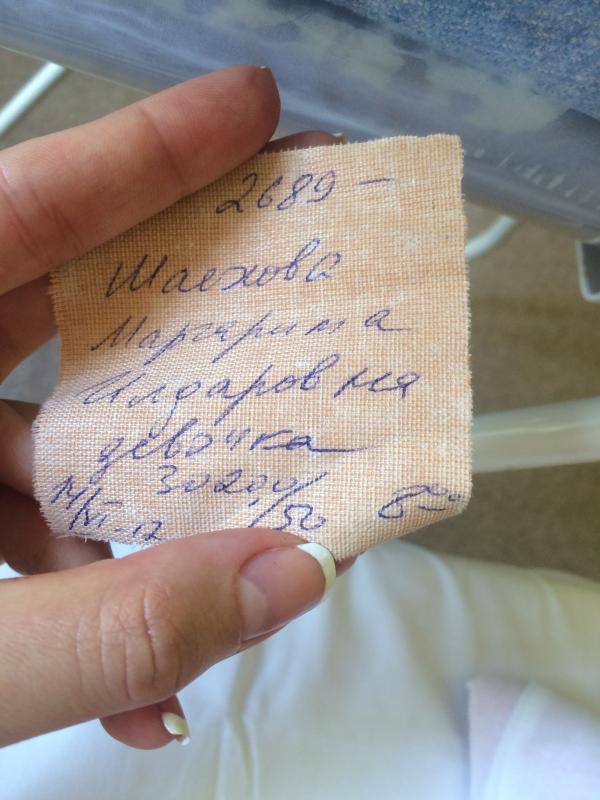 2689 –
Шаехова
Маргарита
Илдаровна
девочка
3020,0/50 8⁰⁰
12